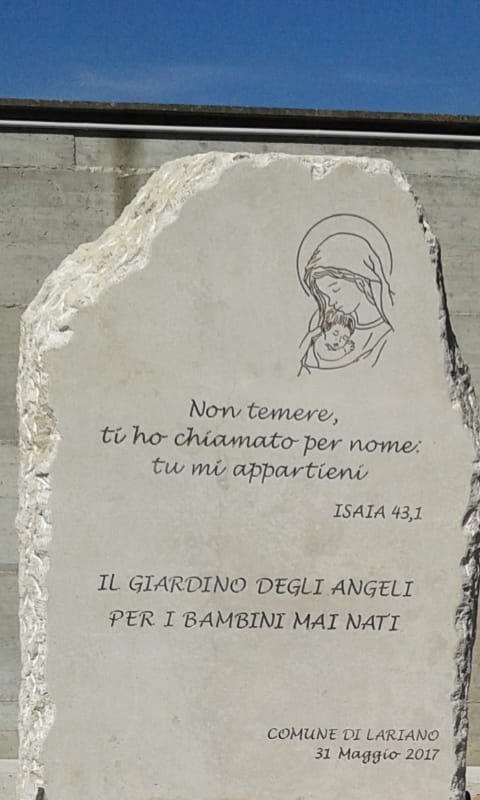 Non temere,
ti ho chiamato per nome:
tu mi appartieni
ISAIA 43,1
IL GIARDINO DEGLI ANGELI
PER I BAMBINI MAI NATI
COMUNE DI LARIANO
31 Maggio 2017